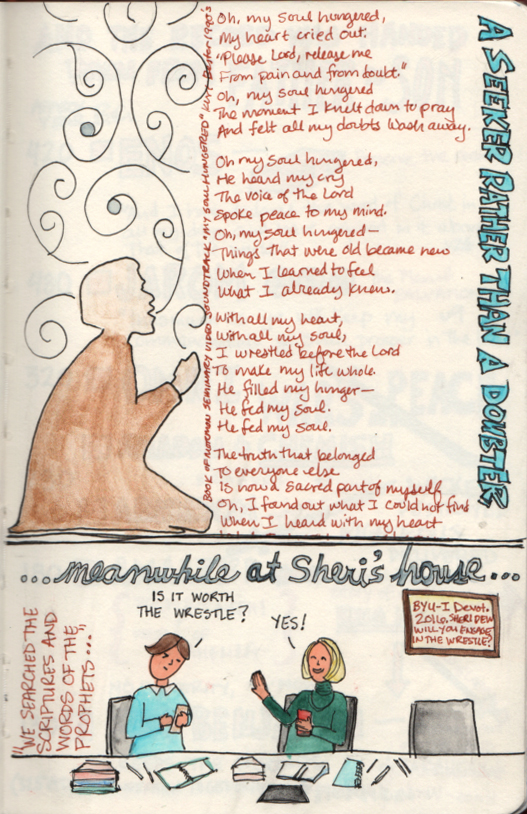 Oh, my soul hungered,
My heart cried out.
"Please Lord, release me
From pain and from doubt."
Oh, my soul hungered
The moment I knelt down to pray
And felt all my doubts wash away.
Oh my soul hungered,
He heard my cry
The voice of the Lord
Spoke peace to my mind.
Oh, my soul hungered—
Things That were old became new
When I learned to feel
What I already knew.
With all my heart,
With all my soul,
I wrestled before the Lord
To make my life whole.
He filled my hunger—
He fed my soul.
He fed my soul.
The truth that belonged
To everyone else
is now a sacred part of myself
Oh, I found out what I could not find
When I heard with my heart
BOOK OF MORMON SEMINARY VIDEO SOUNDTRACK "MY SOUL HUNGERED" Kurt Bestor 1990's
A SEEKER RATHER THAN A DOUBTER
...meanwhile at Sheri's house...
IS IT WORTH
THE WRESTLE?
YES!
BYU-I Devot.
2016. SHERI DEW
WILL YOU ENGAGE
IN THE WRESTLE?
"WE SEARCHED THE
SCRIPTURES AND
WORDS OF THE
PROPHETS..."